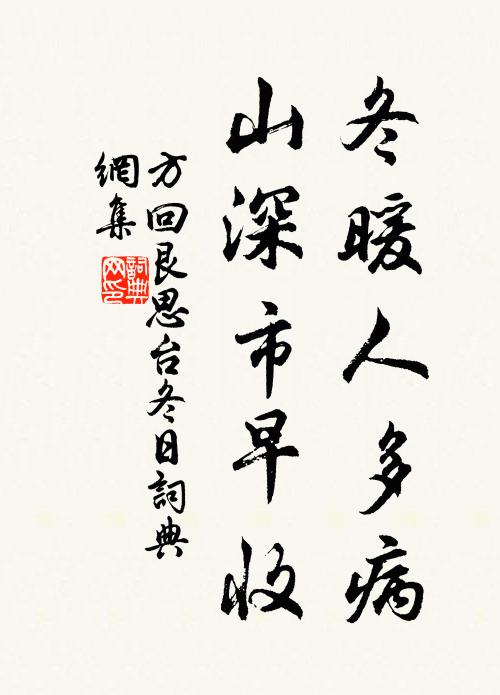 冬暖人多病
山深市早收
方回艮思台冬日詞典
網集
詞典網印